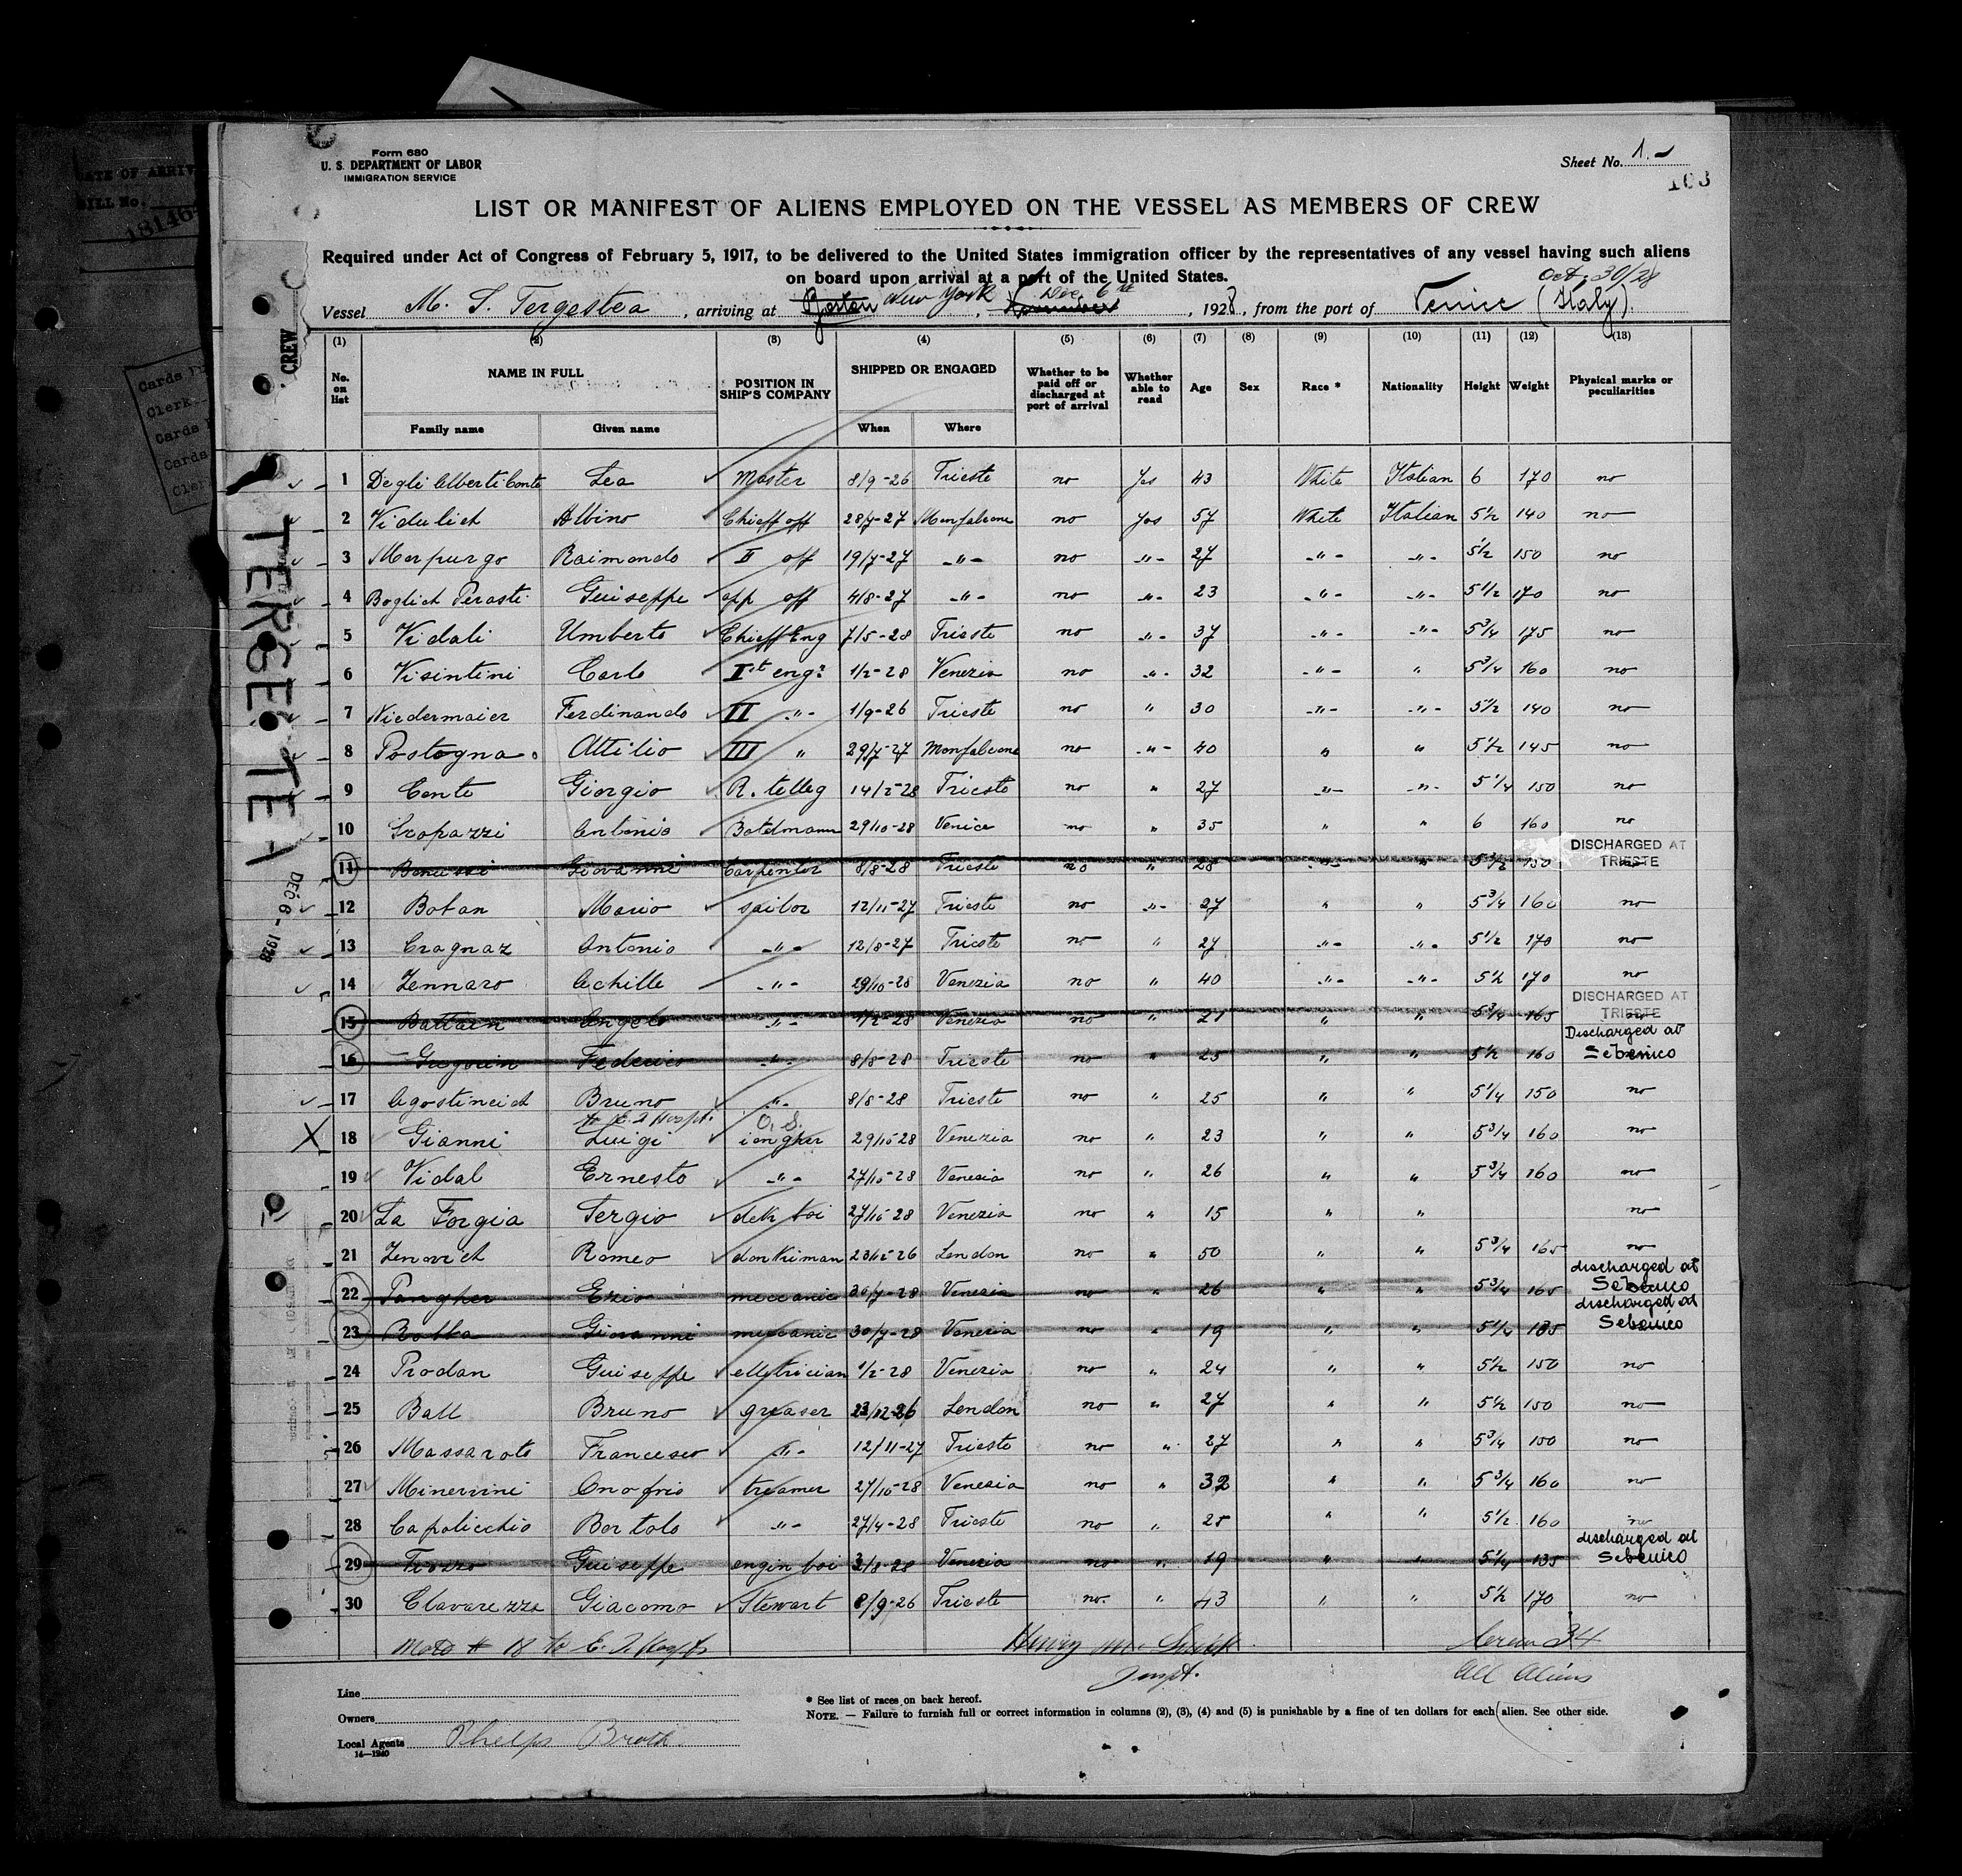 Form 680
U. S. DEPARTMENT OF LABOR
IMMIGRATION SERVICE
Sheet No. 1.
103
LIST OR MANIFEST OF ALIENS EMPLOYED ON THE VESSEL AS MEMBERS OF CREW
Required under Act of Congress of February 5, 1917, to be delivered to the United States immigration officer by the representatives of any vessel having such aliens
on board upon arrival at a port of the United States.
Oct. 30/28
Vessel M. S. Tergestea, arriving at Boston New York, Dec. 6th, 1928, from the port of Venice (Italy)
(1) (2) (3) (4) (5) (6) (7) (8) (9) (10) (11) (12) (13)
No. on list NAME IN FULL Family name Given name POSITION IN SHIP'S COMPANY SHIPPED OR ENGAGED When Where Whether to be paid off or discharged at port of arrival Whether able to read Age Sex Race * Nationality Height Weight Physical marks or peculiarities
1 Degli Alberti Conte Lea Master 8/9-26 Trieste no Yes 43 White Italian 6 170 no
2 Vidulich Albino Chieff off 28/7-27 Monfalcone no Yes 57 White Italian 5 1/2 140 no
3 Morpurgo Raimondo II off 19/7-27 -"- no -"- 27 -"- -"- 5 1/2 150 no
4 Boglich Perasti Guiseppe app off 4/8-27 -"- no -"- 23 -"- -"- 5 1/2 170 no
5 Vidali Umberto Chieff Eng 7/5-28 Trieste no -"- 37 -"- -"- 5 3/4 175 no
6 Visintini Carlo Ist engr 1/2-28 Venezia no -"- 32 -"- " 5 3/4 160 no
7 Niedermaier Ferdinando II -"- 1/9-26 Trieste no " 30 -"- -"- 5 1/2 140 no
8 Postogna Attilio III " 29/7-27 Monfalcone no -"- 40 " " 5 1/2 145 no
9 Conte Giorgio R. telleg 14/2-28 Trieste no " 27 -"- -"- 5 1/4 150 no
10 Scopazzi Antonio Botdmann 29/10-28 Venice no " 35 " " 6 160 no
11 Benussi Giovanni Carpenter 8/8-28 Trieste no " 28 -"- " 5 3/2 150 DISCHARGED AT TRIESTE
12 Botan Mario sailor 12/11-27 Trieste no -"- 27 " " 5 3/4 160 no
13 Cragnaz Antonio -"- 12/8-27 Trieste no " 27 -"- -"- 5 1/2 170 no
14 Zennaro Achille -"- 29/10-28 Venezia no " 40 -"- -"- 5 1/2 170 no
15 Battain Angelo -"- 1/2-28 Venezia no " 21 " " 5 3/4 165 DISCHARGED AT TRIESTE
16 Gregorin Federico -"- 8/8-28 Trieste no " 25 " " 5 1/2 160 Discharged at Sebenico
17 Agostincich Bruno -"- 8/8-28 Trieste no " 25 " " 5 1/4 150 no
to E. I Hosp. O. S.
18 Gianni Luigi iongher 29/10-28 Venezia no " 23 " " 5 3/4 160 no
19 Vidal Ernesto -"- 27/10-28 Venezia no " 26 " " 5 3/4 160 no
20 La Forgia Sergio dek boi 27/10-28 Venezia no " 15 " " no
21 Zenovich Romeo donkiman 23/12-26 London no " 50 " " 5 3/4 165 no
22 Pangher Ezio meccanic 30/7-28 Venezia no " 26 " " 5 3/4 165 discharged at Sebenico
23 Rotta Giovanni meccanic 30/7-28 Venezia no " 19 " " 5 1/4 135 discharged at Sebenico
24 Prodan Guiseppe elletrician 1/2-28 Venezia no " 24 " " 5 1/2 150 no
25 Ball Bruno greaser 23/12-26 London no " 27 " " 5 1/2 150 no
26 Massaroto Francesco -"- 12/11-27 Trieste no " 27 " " 5 3/4 150 no
27 Minervini Onofrio treamer 27/10-28 Venezia no " 32 " " 5 3/4 160 no
28 Capolicchio Bortolo -"- 27/4-28 Trieste no " 25 " " 5 1/2 160 no
29 Tiozzo Guiseppe engin boi 3/8-28 Venezia no " 19 " " 5 1/4 135 discharged at Sebenico
30 Clavarezza Giacomo Stewart 8/9-26 Trieste no. " 43 " " 5 1/2 170 no
# 18 to E. I Hosp. Henry Crew 34
Inspt. All Aliens
Line
Owners
Local Agents Phelps Broth.
14—1240
* See list of races on back hereof.
NOTE. — Failure to furnish full or correct information in columns (2), (3), (4) and (5) is punishable by a fine of ten dollars for each alien. See other side.
CREW
TERGESTEA
DEC 6 - 1928
BILL No.
Cards
Clerk
Cards
Cards